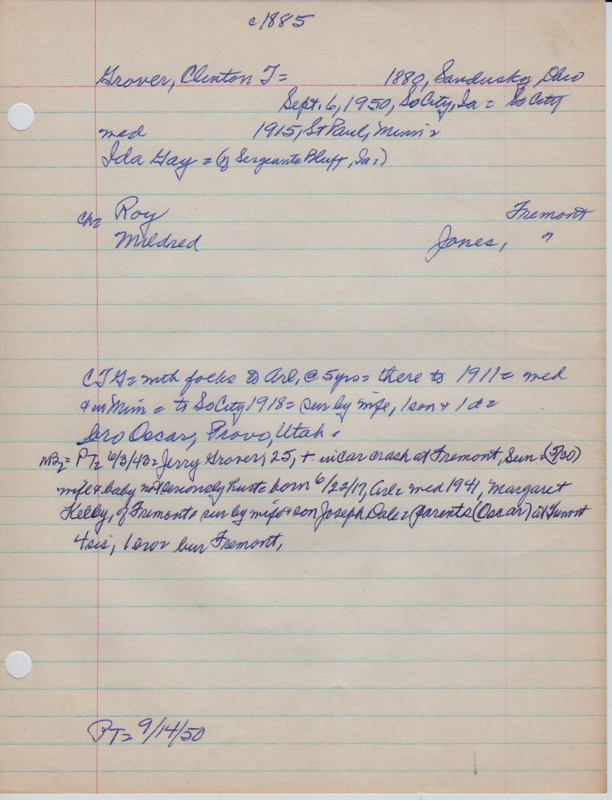 c1885
Grover, Clinton T= 1880, Sandusky, Ohio
Sept. 6, 1950, SoCity, Ia = SoCity
med 1915, St Paul, Minn=
Ida Gay = (of Sergeants Bluff, Ia=)
ch= Roy Fremont
Mildred Jones, "
CTG= mth folks to Arl, @ 5yrs= there to 1911= med
& in Minn = to SoCity 1918= sur by wife, 1 son & 1 d=
bro Oscar, Provo, Utah.
MB2= PT= 6/3/43= Jerry Grover, 25, + in car crash at Fremont, Sun= (5/30)
wife & baby not seriously hurt= born 6/22/17, Arl= med 1941, Margaret
Kelly, of Fremont= sur by wife & son Joseph Dale= parents (Oscar) at Fremont
4 sis, 1 bro= bur Fremont,
PT= 9/14/50